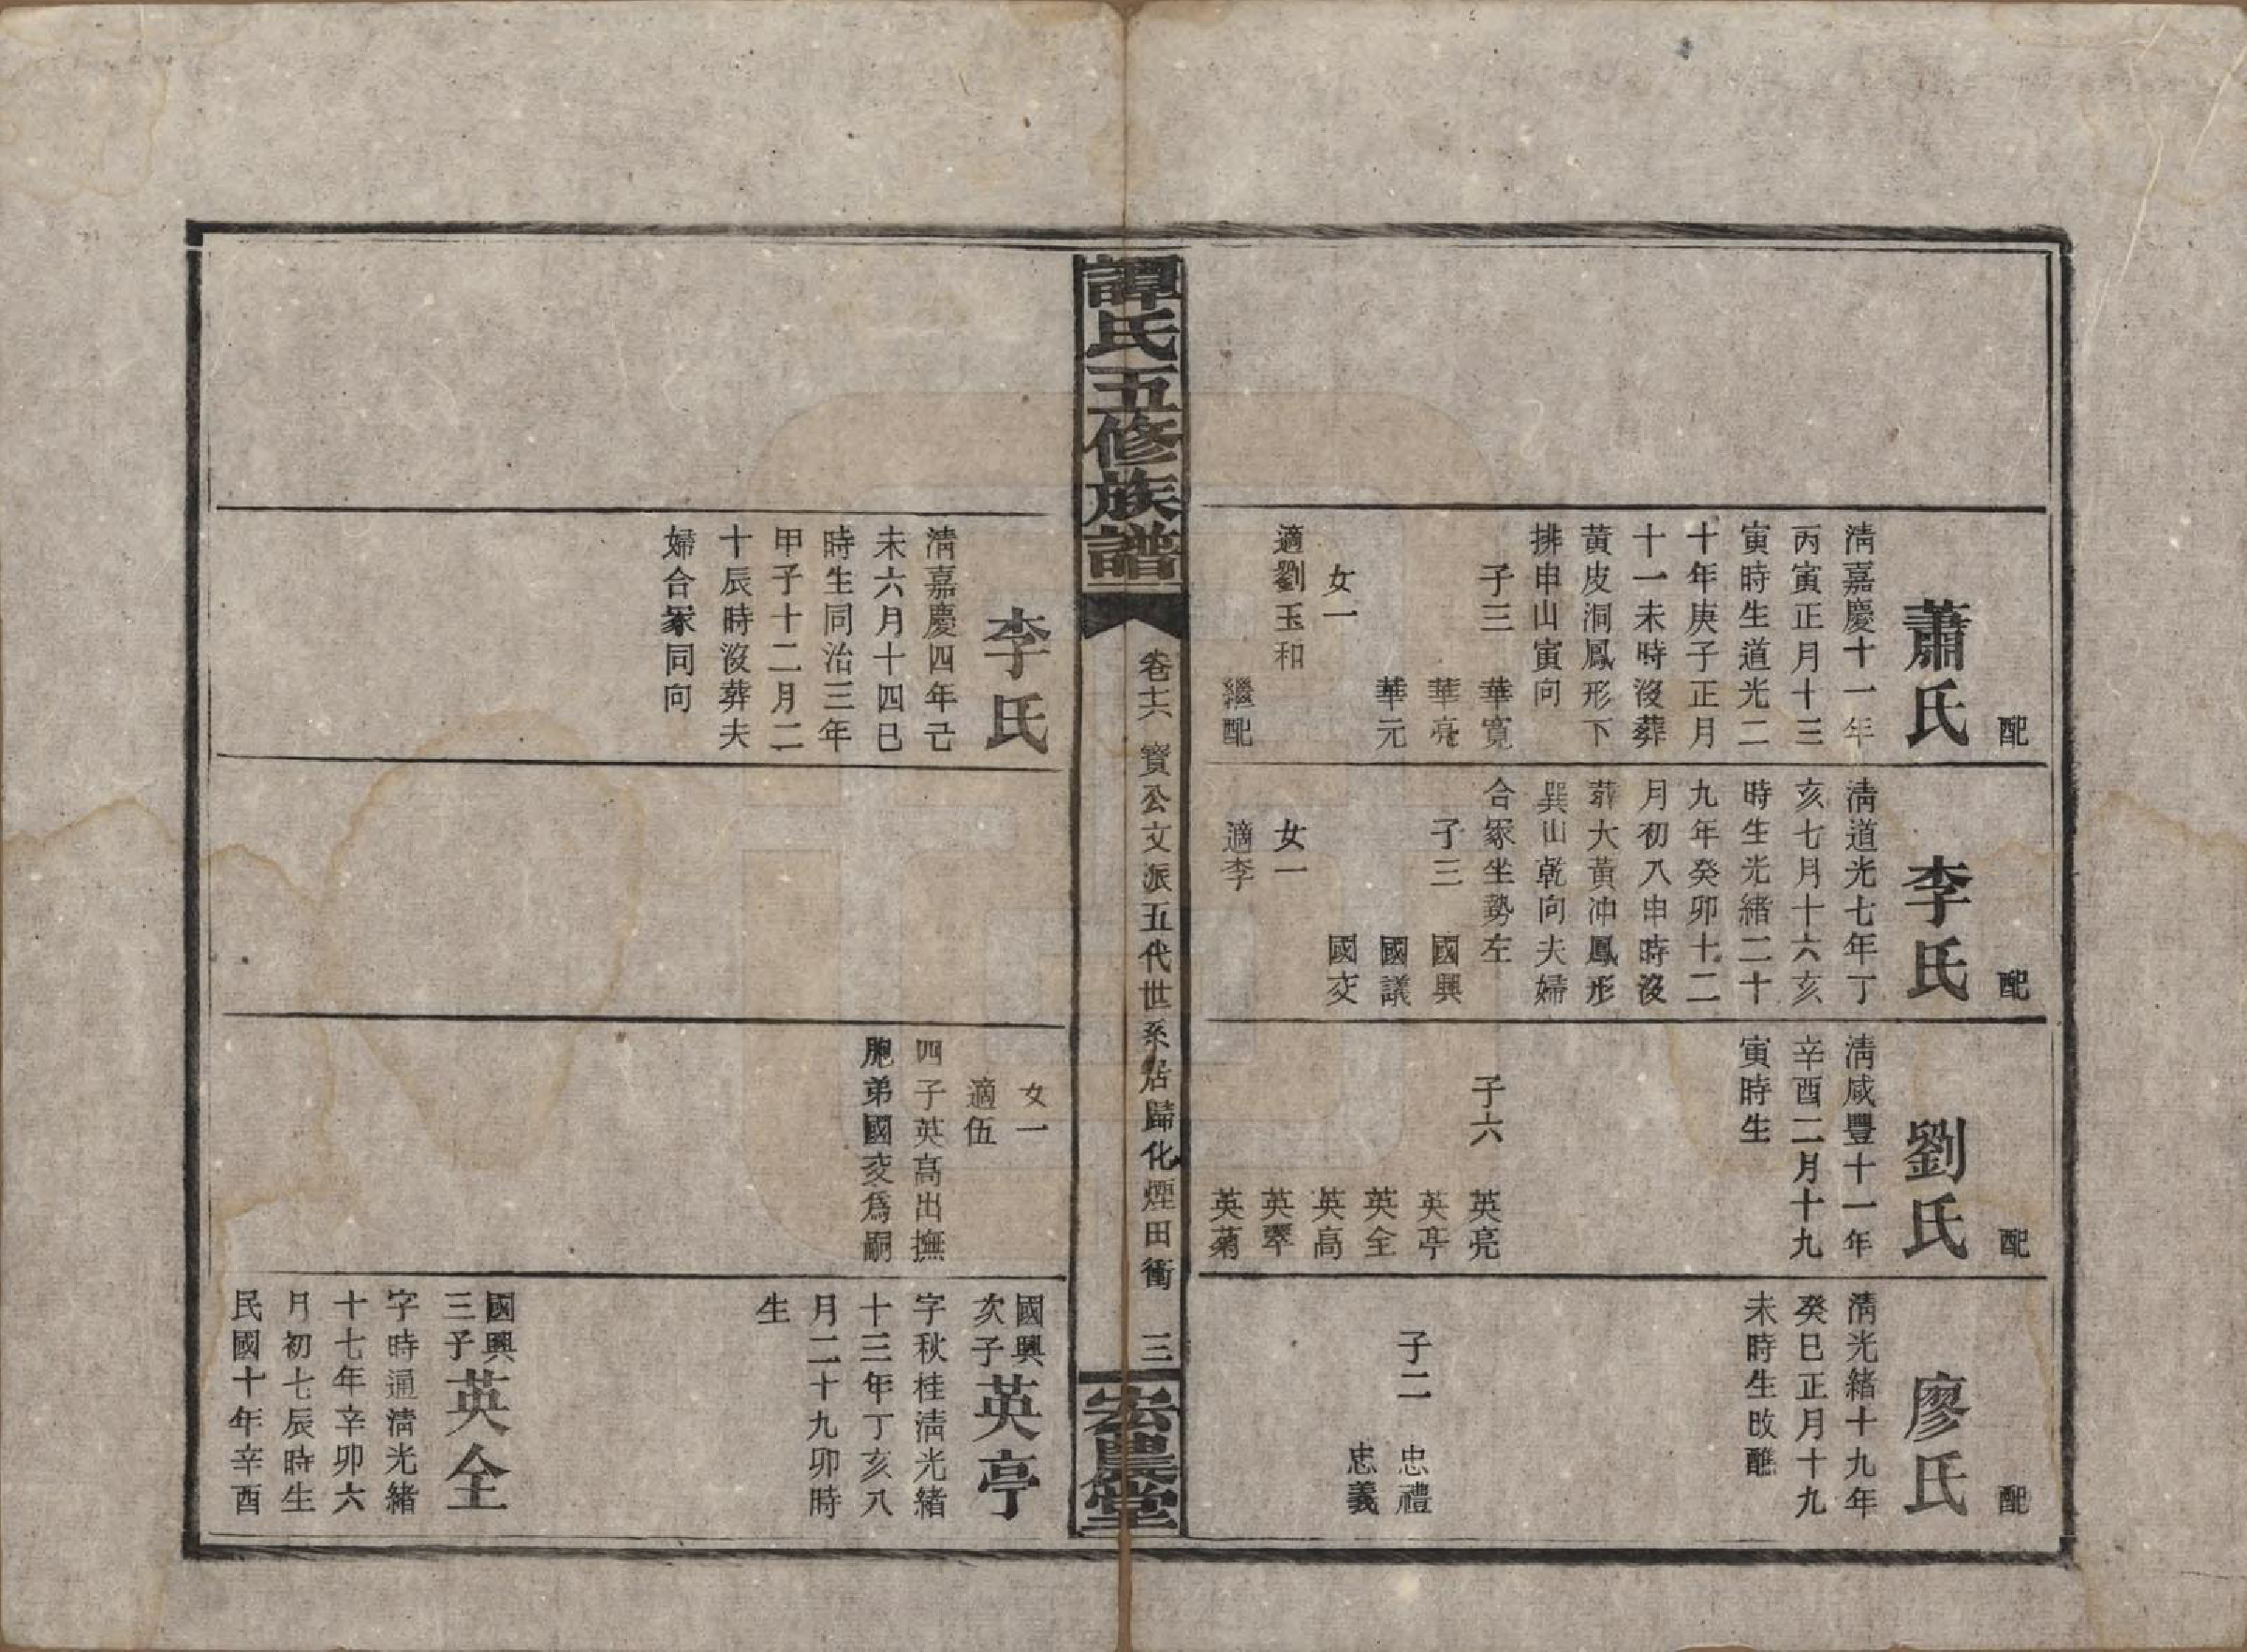 配
蕭氏
淸嘉慶十一年
丙寅正月十三
寅時生道光二
十年庚子正月
十一未時沒葬
黃皮洞鳳形下
排申山寅向
子三 華寬
華亮
華元
女一
適劉玉和
繼配
配
李氏
淸道光七年丁
亥七月十六亥
時生光緖二十
九年癸卯十二
月初八申時沒
葬大黃冲鳳形
巽山乾向夫婦
合冢坐勢左
子三 國興
國議
國交
女一
適李
配
劉氏
淸咸豐十一年
辛酉二月十九
寅時生
子六 英亮
英亭
英全
英高
英翠
英菊
配
廖氏
淸光緖十九年
癸巳正月十九
未時生改醮
子二 忠禮
忠義
譚氏五修族譜
卷十六 寶公文派五代世系居歸化煙田衝 三
宏農堂
李氏
淸嘉慶四年己
未六月十四巳
時生同治三年
甲子十二月二
十辰時沒葬夫
婦合冢同向
女一
適伍
四子英高出撫
胞弟國交爲嗣
國興
次子英亭
字秋桂淸光緖
十三年丁亥八
月二十九卯時
生
國興
三子英全
字時通淸光緖
十七年辛卯六
月初七辰時生
民國十年辛酉